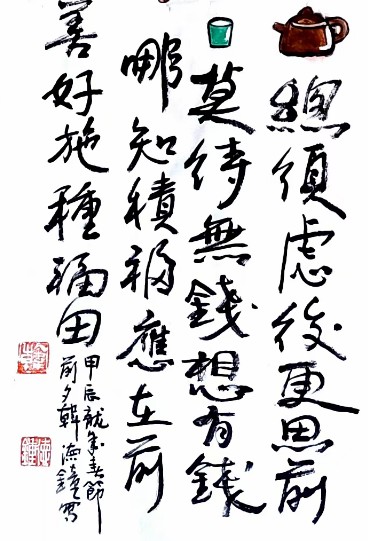 總須慮後更思前
莫待無錢想有錢
哪知積福應在前
善好施種福田
甲辰龍年春節
前夕韓